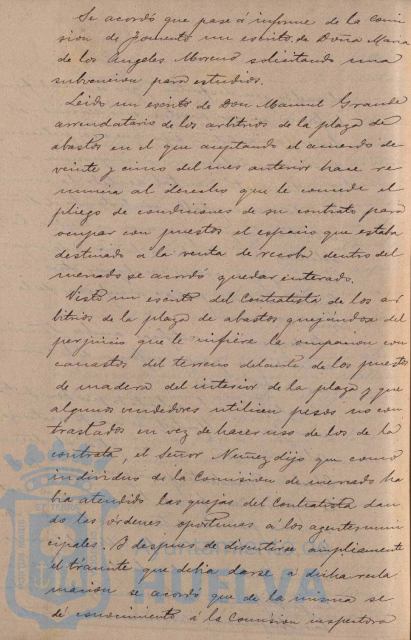 Se acordó que pase á informe de la comi
sion de Fomento un escrito de Doña Maria
de los Angeles Moreno solicitando una
subvencion para estudios.
Leido un escrito de Don Manuel Grande
arrendatario de los arbitrios de la plaza de
abastos en el que aceptando el acuerdo de
veinte y cinco del mes anterior hace re
nuncia al derecho que le concede el
pliego de condiciones de su contrato para
ocupar con puestos el espacio que estaba
destinado á la venta de recoba dentro del
mercado se acordó quedar enterado.
Visto un escrito del Contratista de los ar
bitrios de la plaza de abastos quejandose del
perjuicio que le infiere la ocupacion con
canastos del terreno delante de los puestos
de madera del interior de la plaza y que
algunos vendedores utilicen pesos no con
trastados en vez de hacer uso de los de la
contrata, el Señor Nuñez dijo que como
individuo de la Comision de mercado ha
bia atendido las quejas del Contratista dan
do las órdenes oportunas á los agentes muni
cipales. Y despues de discutirse ampliamente
el trámite que debia darse á dicha recla
macion se acordó que de la misma se
dé conocimiento á la Comision inspectora